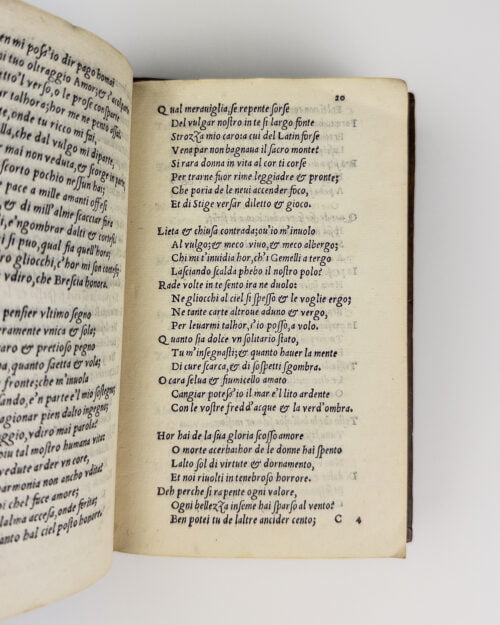 en mi poss'io dir pago homai
i tuo oltraggio Amor;
ttro'l verso, o le prose consparte
tar talhora; hor me ne pento assai:
te, onde tu ricco mi fai,
che dal vulgo mi diparte,
mai non veduta, & scorge in parte
scorto pochi ne ssun hai;
pace a mille amanti offresi
& di mill'alme scacciar fora
e'ngombrar dalti & cortesi
i si puo, qual fia quell'hora,
gliocchi, c'hor mi son contesi
vdiro, che Brescia honora.
pensier vltimo segno
erramente vnica & sola;
aro & pretioso pegno
qua, quanto saetta & vola;
fronte; che m'inuola
ndo, e'n parte e'l mio sostegno;
agionar pien dalto ingegno;
aggio, vdiro mai parola?
piu tal mostro humana vita:
vedute arder vn core,
armonia non anchor vdita?
chel face amore;
lalma accesa, onde ferita;
anto hal ciel posto honore.
20
Qual merauiglia, se repente sorse
Del vulgar nostro in te si largo fonte
Strozza mio caro: a cui del Latin forse
Vena par non bagnaua il sacro monte?
Si rara donna in vita al cor ti corse
Per trarne fuor rime leggiadre & pronte;
Che poria de le neui accender foco,
Et di Stige versar diletto & gioco.
Lieta & chiusa contrada; ou'io m'inuolo
Al vulgo; & meco viuo, & meco albergo;
Chi mi t'inuidia hor, ch'i Gemelli a tergo
Lasciando scalda phebo il nostro polo?
Rade volte in te sento ira ne duolo:
Ne gliocchi al ciel si spesso & le voglie ergo;
Ne tante carte altroue aduno & vergo,
Per leuarmi talhor, s'io posso, a volo.
Quanto sia dolce vn solitario stato,
Tu m'insegnasti; & quanto hauer la mente
Di cure scarca, & di sospetti sgombra.
O cara selua & fiumicello amato
Cangiar potess'io il mar e'l lito ardente
Con le vostre fredd'acque & la verd'ombra.
Hor hai de la sua gloria scosso amore
O morte acerba: hor de le donne hai spento
Lalto sol di virtute & d'ornamento,
Et noi riuolti in tenebroso horrore.
Deh perche si repente ogni valore,
Ogni bellezza inseme hai sparso al vento?
Ben potei tu de laltre ancider cento;
C 4